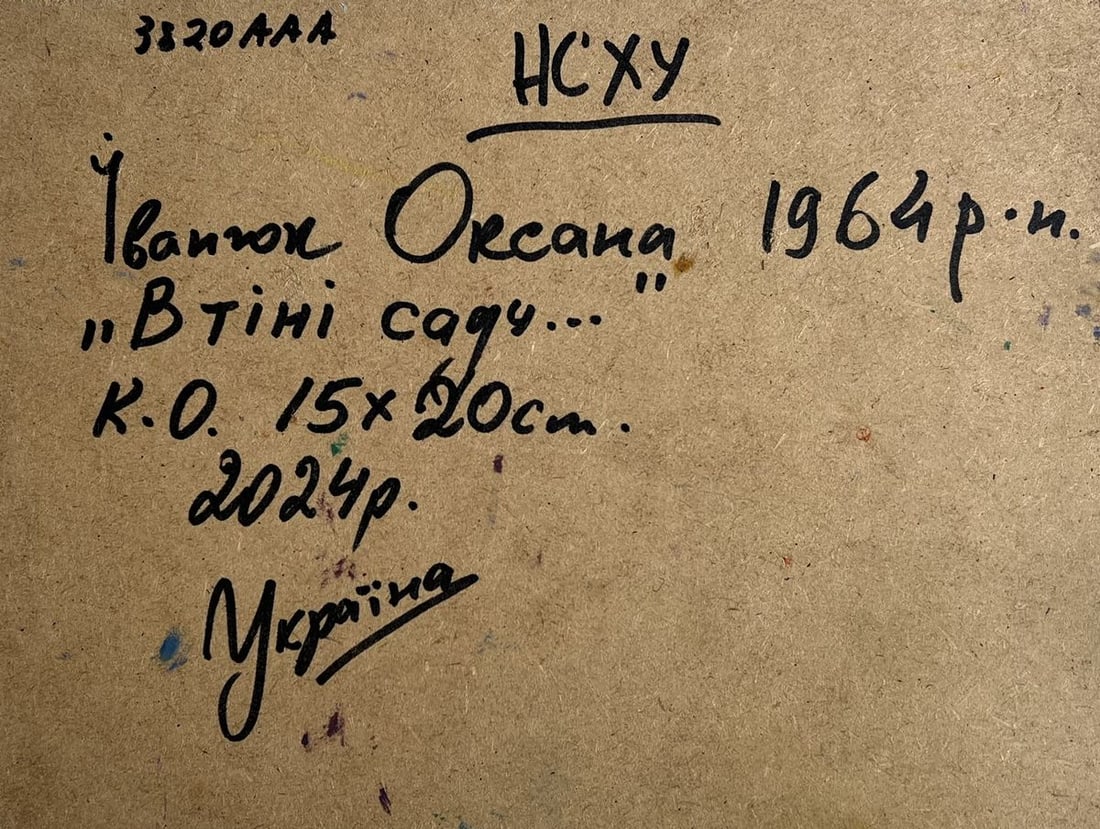 3820AAA
НСХУ
Іванюк Оксана 1964р.н.
„В тіні саду..."
К.О. 15х20см.
2024р.
Україна